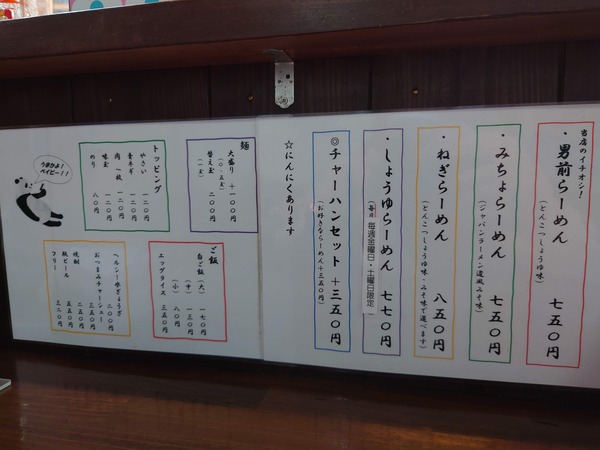 当店のイチオシ!
・男前らーめん 七五〇円
(とんこつしょうゆ味)
・みちょらーめん 七五〇円
(ジャパンラーメン道風みそ味)
・ねぎらーめん 八五〇円
(とんこつしょうゆ味・みそ味で選べます)
・しょうゆらーめん 七七〇円
(毎月 毎週金曜日・土曜日限定)
◎チャーハンセット +三五〇円
(お好きならーめん+三五〇円)
☆にんにくあります
麺
大盛り +一〇〇円
(〇・五玉)
替え玉 二〇〇円
(一玉)
トッピング
やさい 一二〇円
青ネギ 一二〇円
肉一枚 一二〇円
味玉 一二〇円
のり 八〇円
ご飯
白ご飯(大) 一七〇円
(中) 一三〇円
(小) 八〇円
エッグライス 三五〇円
ヘルシー水ぎょうざ 二〇〇円
おつまみチャーシュー 三五〇円
焼酎 三五〇円
瓶ビール 五五〇円
フリー 三二〇円
うまかよ!
ベイビー!!